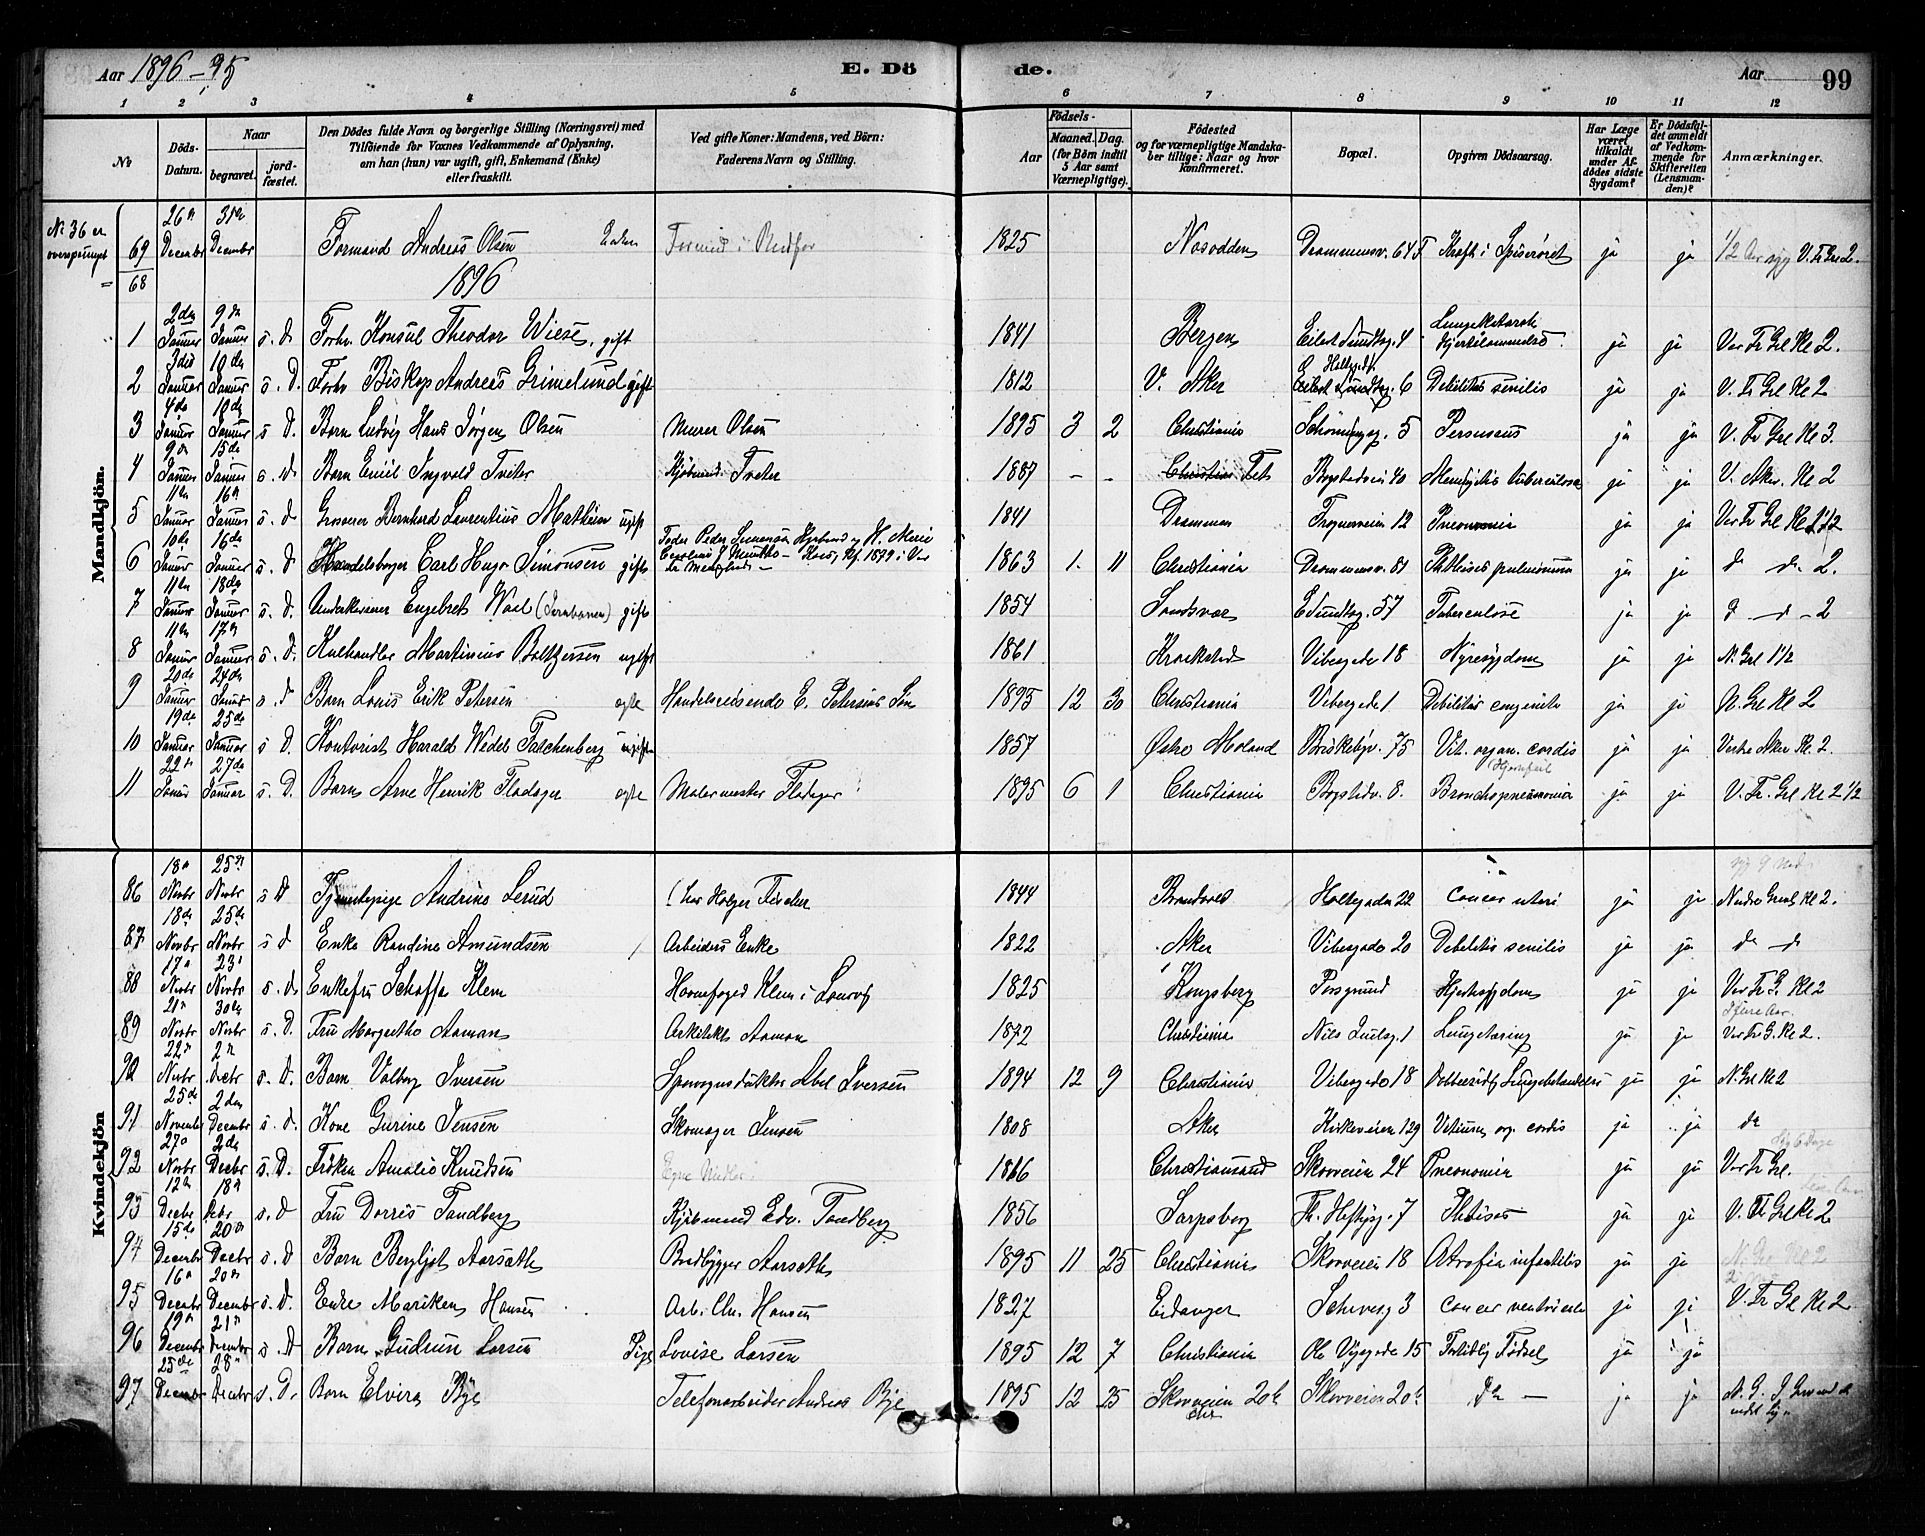 Aar 1896-95
E. Dö
de.
Aar
99
1 2 3 4 5 6 7 8 9 10 11 12
No
Döds-Datum.
Naar
begravet.
jord-fæstet.
Den Dödes fulde Navn og borgerlige Stilling (Næringsvei) med
Tilföiende for Voxnes Vedkommende af Oplysning,
om han (hun) var ugift, gift, Enkemand (Enke)
eller fraskilt.
Ved gifte Koner: Mandens, ved Börn:
Faderens Navn og Stilling.
Födsels-
Aar
Maaned. Dag.
(for Börn indtil
5 Aar samt
Værnepligtige).
Födested
og for værnepligtige Mandska-
ber tillige: Naar og hvor
konfirmeret.
Bopæl.
Opgiven Dödsaarsag.
Har Læge
været
tilkaldt
under Af-
dödes sidste
Sygdom?
Er Dödsfal-
det anmeldt
af Vedkom-
mende for
Skifteretten
(Lensman-
den)?
Anmærkninger.
Mandkjön.
No 36 er
69 26 Decembr 31 Decembr Formand Andreas Olsen 1825 Nesodden Drammensv. 64 F Kræft i Spiserøret ja ja 1/2 Aar syg V. Fr Grl 2.
68
1896
1 2den Januar 9de Januar s. D Forhv. Konsul Theodor Wiese, gift 1841 Bergen Eilert Sundtsg. 4 Lungekatarrh ja ja Vor Fr Grl Kl 2.
2 3die Januar 10de Januar s. D. Forhv Biskop Andreas Grimelund gift 1812 V. Aker Eilert Sundtsg. 6 Debilitas senilis ja ja V. Fr Grl Kl 2
3 4de Januar 10de Januar s D. Barn Ludvig Hans Jørgen Olsen Murer Olsen 1895 3 2 Christiania Schøningsg. 5 Pertussis ja ja V. Fr Grl Kl 3.
4 9de Januar 15de Januar s. D Barn Emil Ingvald Tveter Kjøbmand Tveter 1887 - - Christiania Fet Bogstadveien 40 Meningitis tuberculosa ja ja V. Aker. Kl 2
5 11te Januar 16de Januar s. D Grosserer Bernhard Laurentius Mathiesen ugift 1841 Drammen Frognerveien 12 Pneumonia ja ja Vor Fr Grl Kl 1 1/2
6 10de Januar 16de Januar s. D Handelsborger Carl Hugo Simonsen gift 1863 1. 11 Christiania Drammensv. 81 Phthisis pulmonum ja ja do do 2.
7 11te Januar 18de Januar s. D. Underkasserer Engebret Waal (Jernbanen) gift 1854 Sandsvær E. Sundtsg. 57 Tuberculose ja ja d — d - 2
8 11te Januar 17de Januar s. D. Kulhandler Martinius Baltzersen ugift 1861 Kraakstad Vibesgade 18 Nyresygdom ja ja N. Grl 1 1/2
9 20de Januar 24de Januar s. D Barn Louis Erik Petersen ægte Handelsreisende E. Petersens Søn 1895 12 30 Christiania Vibesgade 1 Debilitas congenita ja ja N. Grl Kl 2
10 19de Januar 25de Januar s D. Kontorist Harald Wedel Falchenberg ugift 1857 Østre Moland Briskebyv. 75 Vit. organ. cordis (Hjertefeil ja ja Vestre Aker Kl 2.
11 22de Januar 27de Januar s. D. Barn Arne Henrik Fladager ægte Malermester Fladager 1895 6 1 Christiania Bogstadv. 8. Bronchopneumonia ja ja V. Fr. Grl Kl 2 1/2
Kvindekjön
86 18 Novbr 25 Novbr s D Tjenestepige Andrine Lerud (hos Holger Fischer 1844 Brandvold Holtegaden 22 Cancer uteri ja ja Nordre Gravl Kl 2.
87 18de Novbr 25de Novbr s. d Enke Randine Amundsen Arbeiders Enke 1822 Aker Vibesgade 20 Debilitas senilis ja ja do — do
88 17 Novbr 23 Novbr s. D Enkefru Klem Havnefoged Klem i Laurvig 1825 Kongsberg Porsgrund Hjertesygdom ja ja Vor Fr G. Kl 2
89 21 Novbr 30te Novbr s. D. Fru Margrethe Aaman Arkitekt Aaman 1872 Christiania Nils Juelsg. 1 Lungetæring ja ja Vor Fr G. Kl 2.
90 22 Novbr 2 Decbr s. D. Barn Valborg Iversen Sporvognskonduktør Abel Iversen 1894 12 9 Christiania Vibesgade 18 Dobbeltsidig Lungebetændelse ja ja N. Grl Kl 2
91 25de Novembr 2den December s. D. Kone Gurine Jensen Skomager Jensen 1808 Aker Kirkeveien 129 Vitium org. cordis ja ja do
92 27 Novbr 2de Decbr s. D. Frøken Amalie Knudsen Egne Midler. 1866 Christianssand Skovveien 24 Pneumonia ja ja Vor Fr Grl.
93 12te Decbr 18 Decbr s. D Fru Dorris Tandberg Kjøbmand Edv. Tandberg 1856 Sarpsborg Th. Heftyesg. 7 Phtisis ja ja V. Fr Grl Kl 2
94 15de Decembr 20 Decbr s. D Barn Bergljot Aarsæth Brobygger Aarsæth 1895 11 25 Christiania Skovveien 18 Atrofia infantilis ja ja N. Grl Kl 2
95 16 Decbr 20de Decembr s. D. Enke Mariken Hansen Arb. Chr. Hansen 1827 Eidanger Schivesg 3 Cancer ventriculi ja ja V. Fr Grl Kl 2
96 19 Decembr 21 December s. D Barn Gudrun Larsen Pige Lovise Larsen 1895 12 7 Christiania Ole Vigsgade 15 Fortidlig Fødsel ja ja
97 25de December 28 Decbr s. D. Barn Elvira Bye Telefonarbeider Andreas Bye 1895 12 25 Skovveien 20b Chr Skovveien 20b Do — ja ja N. G.